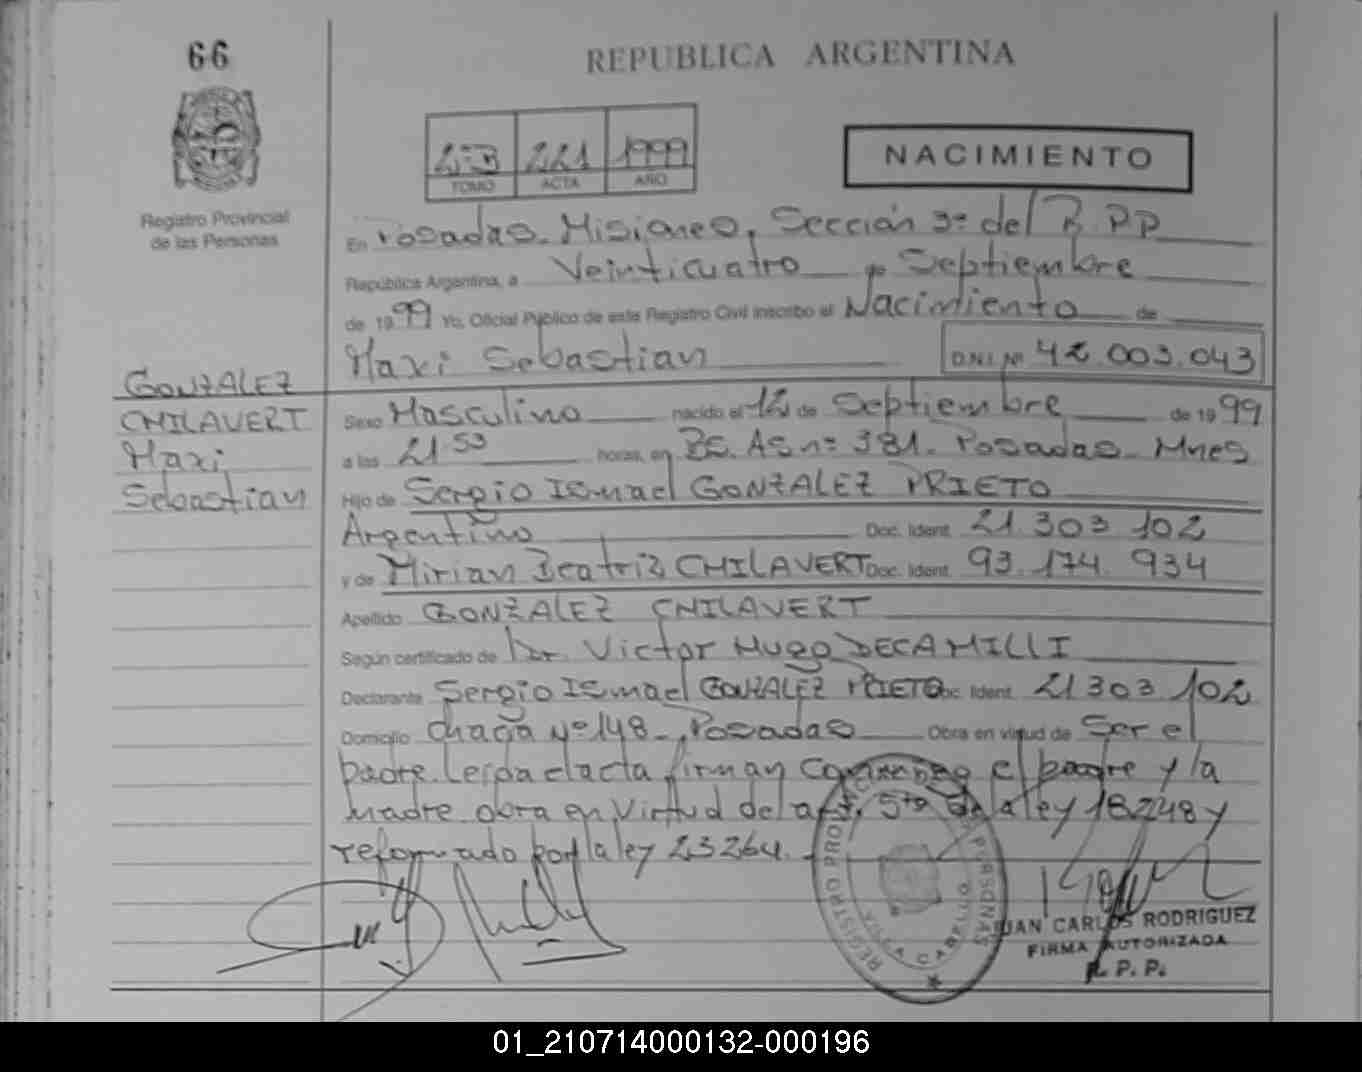 66
REPUBLICA ARGENTINA
2-B 221 1999
TOMO ACTA AÑO
NACIMIENTO
Registro Provincial
de las Personas
En Posadas. Misiones, Sección 3º del R. P P
República Argentina, a Veinticuatro de Septiembre
de 1999 Yo, Oficial Público de este Registro Civil inscribo el Nacimiento de
Maxi Sebastian D.N.I. Nº 42.003.043
GONZALEZ
CHILAVERT
Maxi
Sebastian
Sexo Masculino nacido el 12 de Septiembre de 1999
a las 21 53 horas, en BS. AS nº 381. Posadas. Mnes
Hijo de Sergio Ismael GONZALEZ PRIETO
Argentino Doc. Ident. 21 303 102
y de Mirian Beatriz CHILAVERT Doc. Ident. 93.174.934
Apellido GONZALEZ CHILAVERT
Según certificado de Dr. Victor Hugo DECAMILLI
Declarante Sergio Ismael GONZALEZ PRIETO Doc. Ident. 21 303 102
Domicilio Nº 148 - Posadas Obra en virtud de Ser el
padre. Leida el acta firman el padre y la
madre obra en Virtud del art. 5to de la ley 18248 y
reformado por la ley 23264.
REGISTRO PROVINCIAL DE LAS PERSONAS
VILLA CABELLO
JUAN CARLOS RODRIGUEZ
FIRMA AUTORIZADA
R. P. P.
01_210714000132-000196